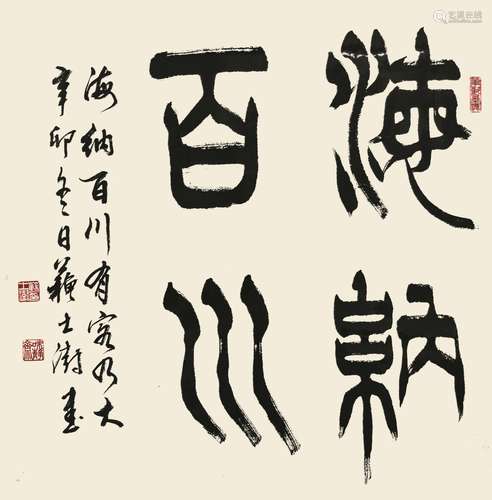 海納
百川
海納百川有容乃大
辛卯冬日蘇士澍書